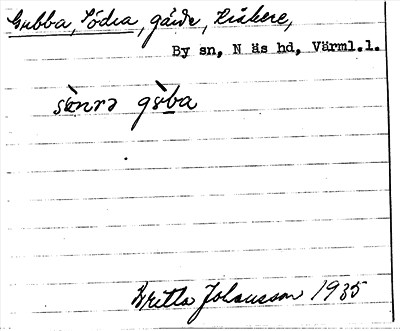 Gubba, Södra, gärde, Kiskere,
By sn, N äs hd, Värml.l.
sö̀nrə gùba
Britta Johansson 1935